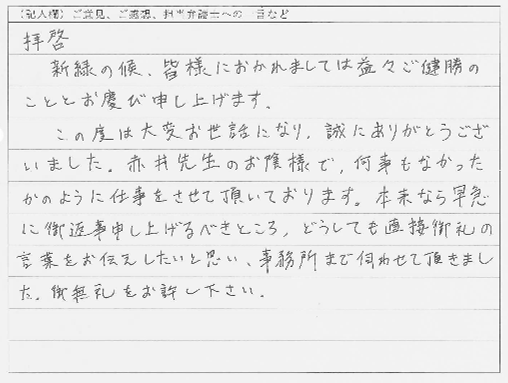 （記入欄）ご意見、ご感想、担当弁護士への一言など
拝啓
新緑の候、皆様におかれましては益々ご健勝の
こととお慶び申し上げます。
この度は大変お世話になり、誠にありがとうござ
いました。赤井先生のお陰様で、何事もなかった
かのように仕事をさせて頂いております。本来なら早急
に御返事申し上げるべきところ、どうしても直接御礼の
言葉をお伝えしたいと思い、事務所まで伺わせて頂きまし
た。御無礼をお許し下さい。